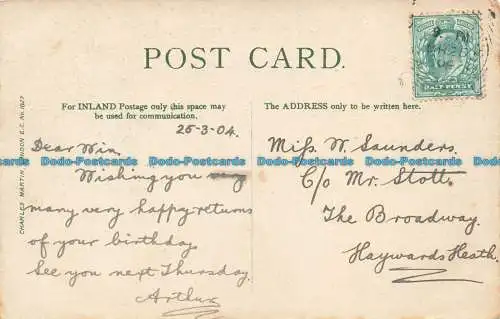 POST CARD.
HALFPENNY
For INLAND Postage only this space may
be used for communication.
The ADDRESS only to be written here.
25-3-04.
Dear Win,
Wishing you
many very happy returns
of your birthday.
See you next Thursday.
Arthur
Miss W. Saunders.
C/o Mr. Stott.
The Broadway.
Haywards Heath.
CHARLES MARTIN, LONDON E.C. No.
Dodo-Postcards Dodo-Postcards Dodo-Postcards Dodo-Postcards